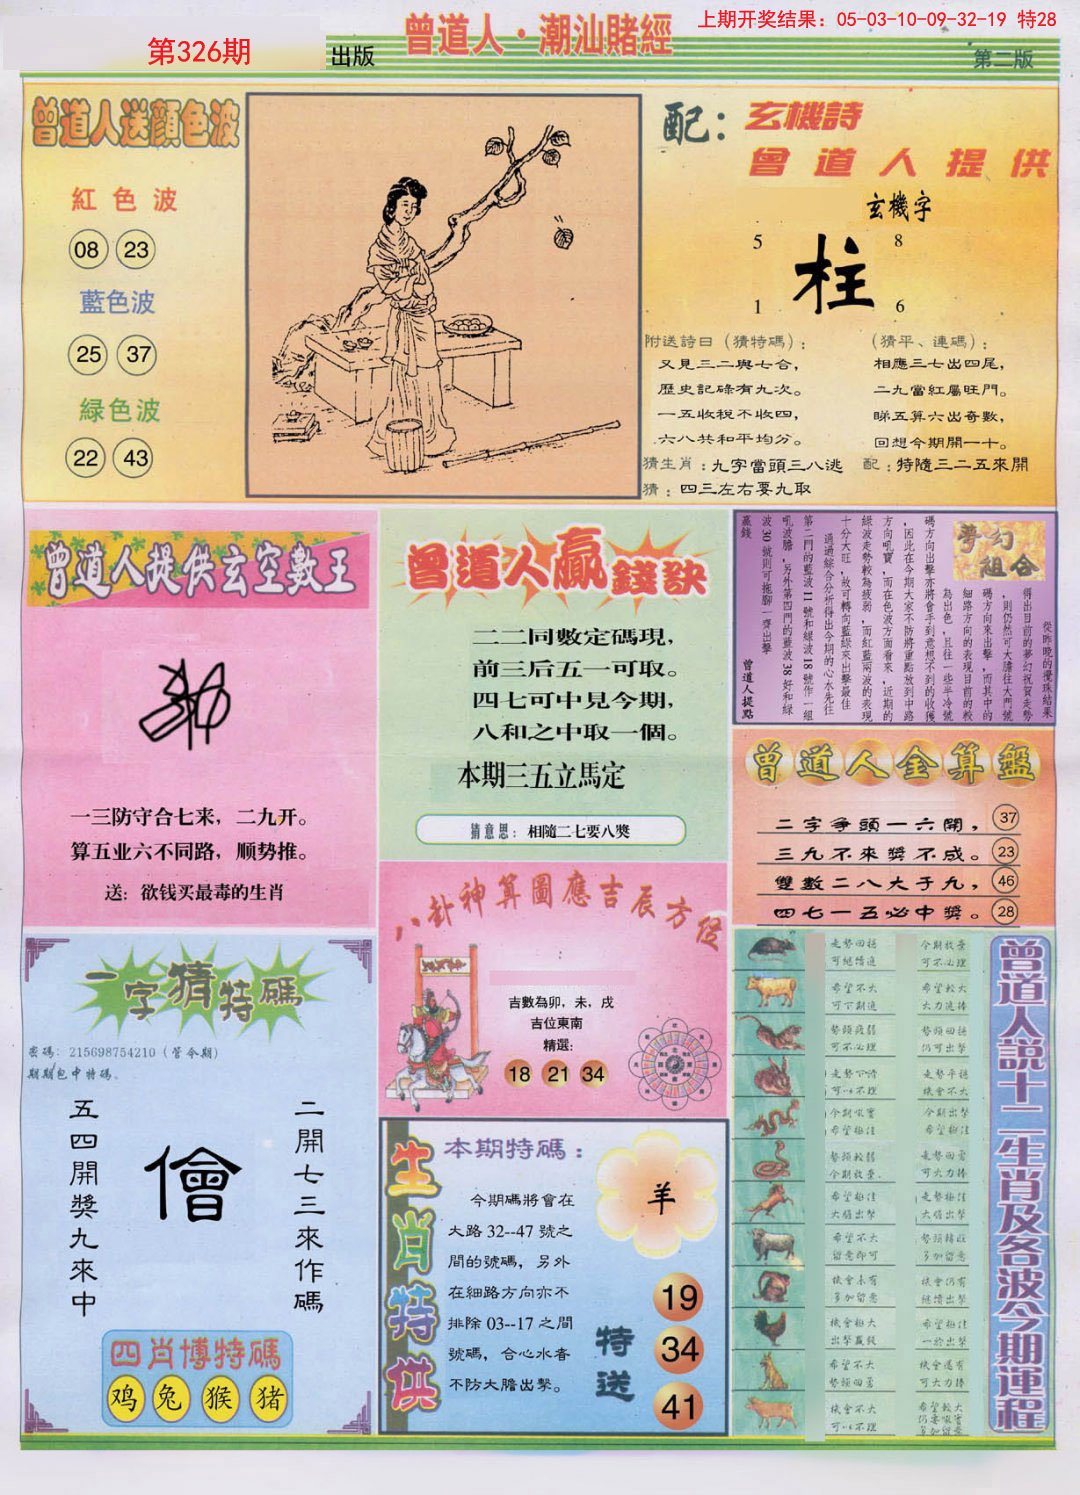 上期开奖结果：05-03-10-09-32-19 特28
第326期
出版
曾道人·潮汕賭經
第二版
曾道人送顔色波
紅色波
08 23
藍色波
25 37
緑色波
22 43
配：玄機詩
曾道人提供
玄機字
5 8
柱
1 6
附送詩日（猜特碼）：
又見三二與七合，
歷史記碌有九次。
一五收稅不收四，
六八共和平均分。
猜生肖：九字當頭三八逃
猜：四三左右要九取
（猜平、連碼）：
相應三七出四尾，
二九當紅屬旺門。
睇五算六出奇數，
回想今期開一十。
配：特隨三二五來開
曾道人提供玄空數王
一三防守合七来，二九开。
算五业六不同路，顺势推。
送：欲钱买最毒的生肖
曾道人贏錢訣
二二同數定碼現，
前三后五一可取。
四七可中見今期，
八和之中取一個。
本期三五立馬定
猜意思：相隨二七要八獎
夢幻組合
從昨晚的攪珠結果
得出目前的夢幻祝賀走勢
，則仍然可大膽往大門號
碼方向來出擊，而其中的
細路方向的表現目前的較
為出色，且往一些半冷號
碼方向出擊亦將會手到意想不到的收獲
，因此在今期大家不防將重點放到中路
方向吼寶，而在色波方面看來，近期的
綠波走勢較為疲弱，而紅藍兩波的表現
十分大旺，故可轉向藍綠來出擊最佳
通過綜合分析得出今期的心水先往
第二門的藍波11號和綠波18號作一組
吼波膽，另外第四門的藍波38好和綠
波30號則可拖腳一齊出擊
贏錢
曾道人提點
曾道人金算盤
二字爭頭一六開，37
三九不來獎不成。23
雙數二八大于九，46
四七一五必中獎。28
八卦神算圖應吉辰方位
吉數為卯，未，戌
吉位東南
精選：
18 21 34
一字猜特碼
密碼：215698754210（管今期）
期期包中特碼。
五四開獎九來中
儈
二開七三來作碼
四肖博特碼
鸡 兔 猴 猪
生肖特供
本期特碼：
今期碼將會在
大路32--47號之
間的號碼，另外
在細路方向亦不
排除03--17之間
號碼，合心水者
不防大膽出擊。
羊
特送
19
34
41
曾道人説十二生肖及各波今期運程
走勢回穩
可繼續追
今期收棄
可不必理
希望不大
可下期追
希望較大
大力追捧
勢頭疲弱
可不必理
勢頭回穩
仍可出擊
走勢下滑
可以不理
走勢平穩
機會不大
今期吸寶
希望極佳
今期出擊
希望極佳
勢頭較弱
今期放棄
走勢回勇
可大力捧
希望極佳
大膽出擊
走勢極佳
大膽出擊
希望不大
留意即可
多加留意
機會未有
多加留意
機會仍有
繼續出擊
機會極大
出擊贏錢
希望極佳
一於出擊
希望不大
勢頭回勇
機會還有
可大力捧
機會不大
可以不理
希望較大
仍要吸寶
多加留意